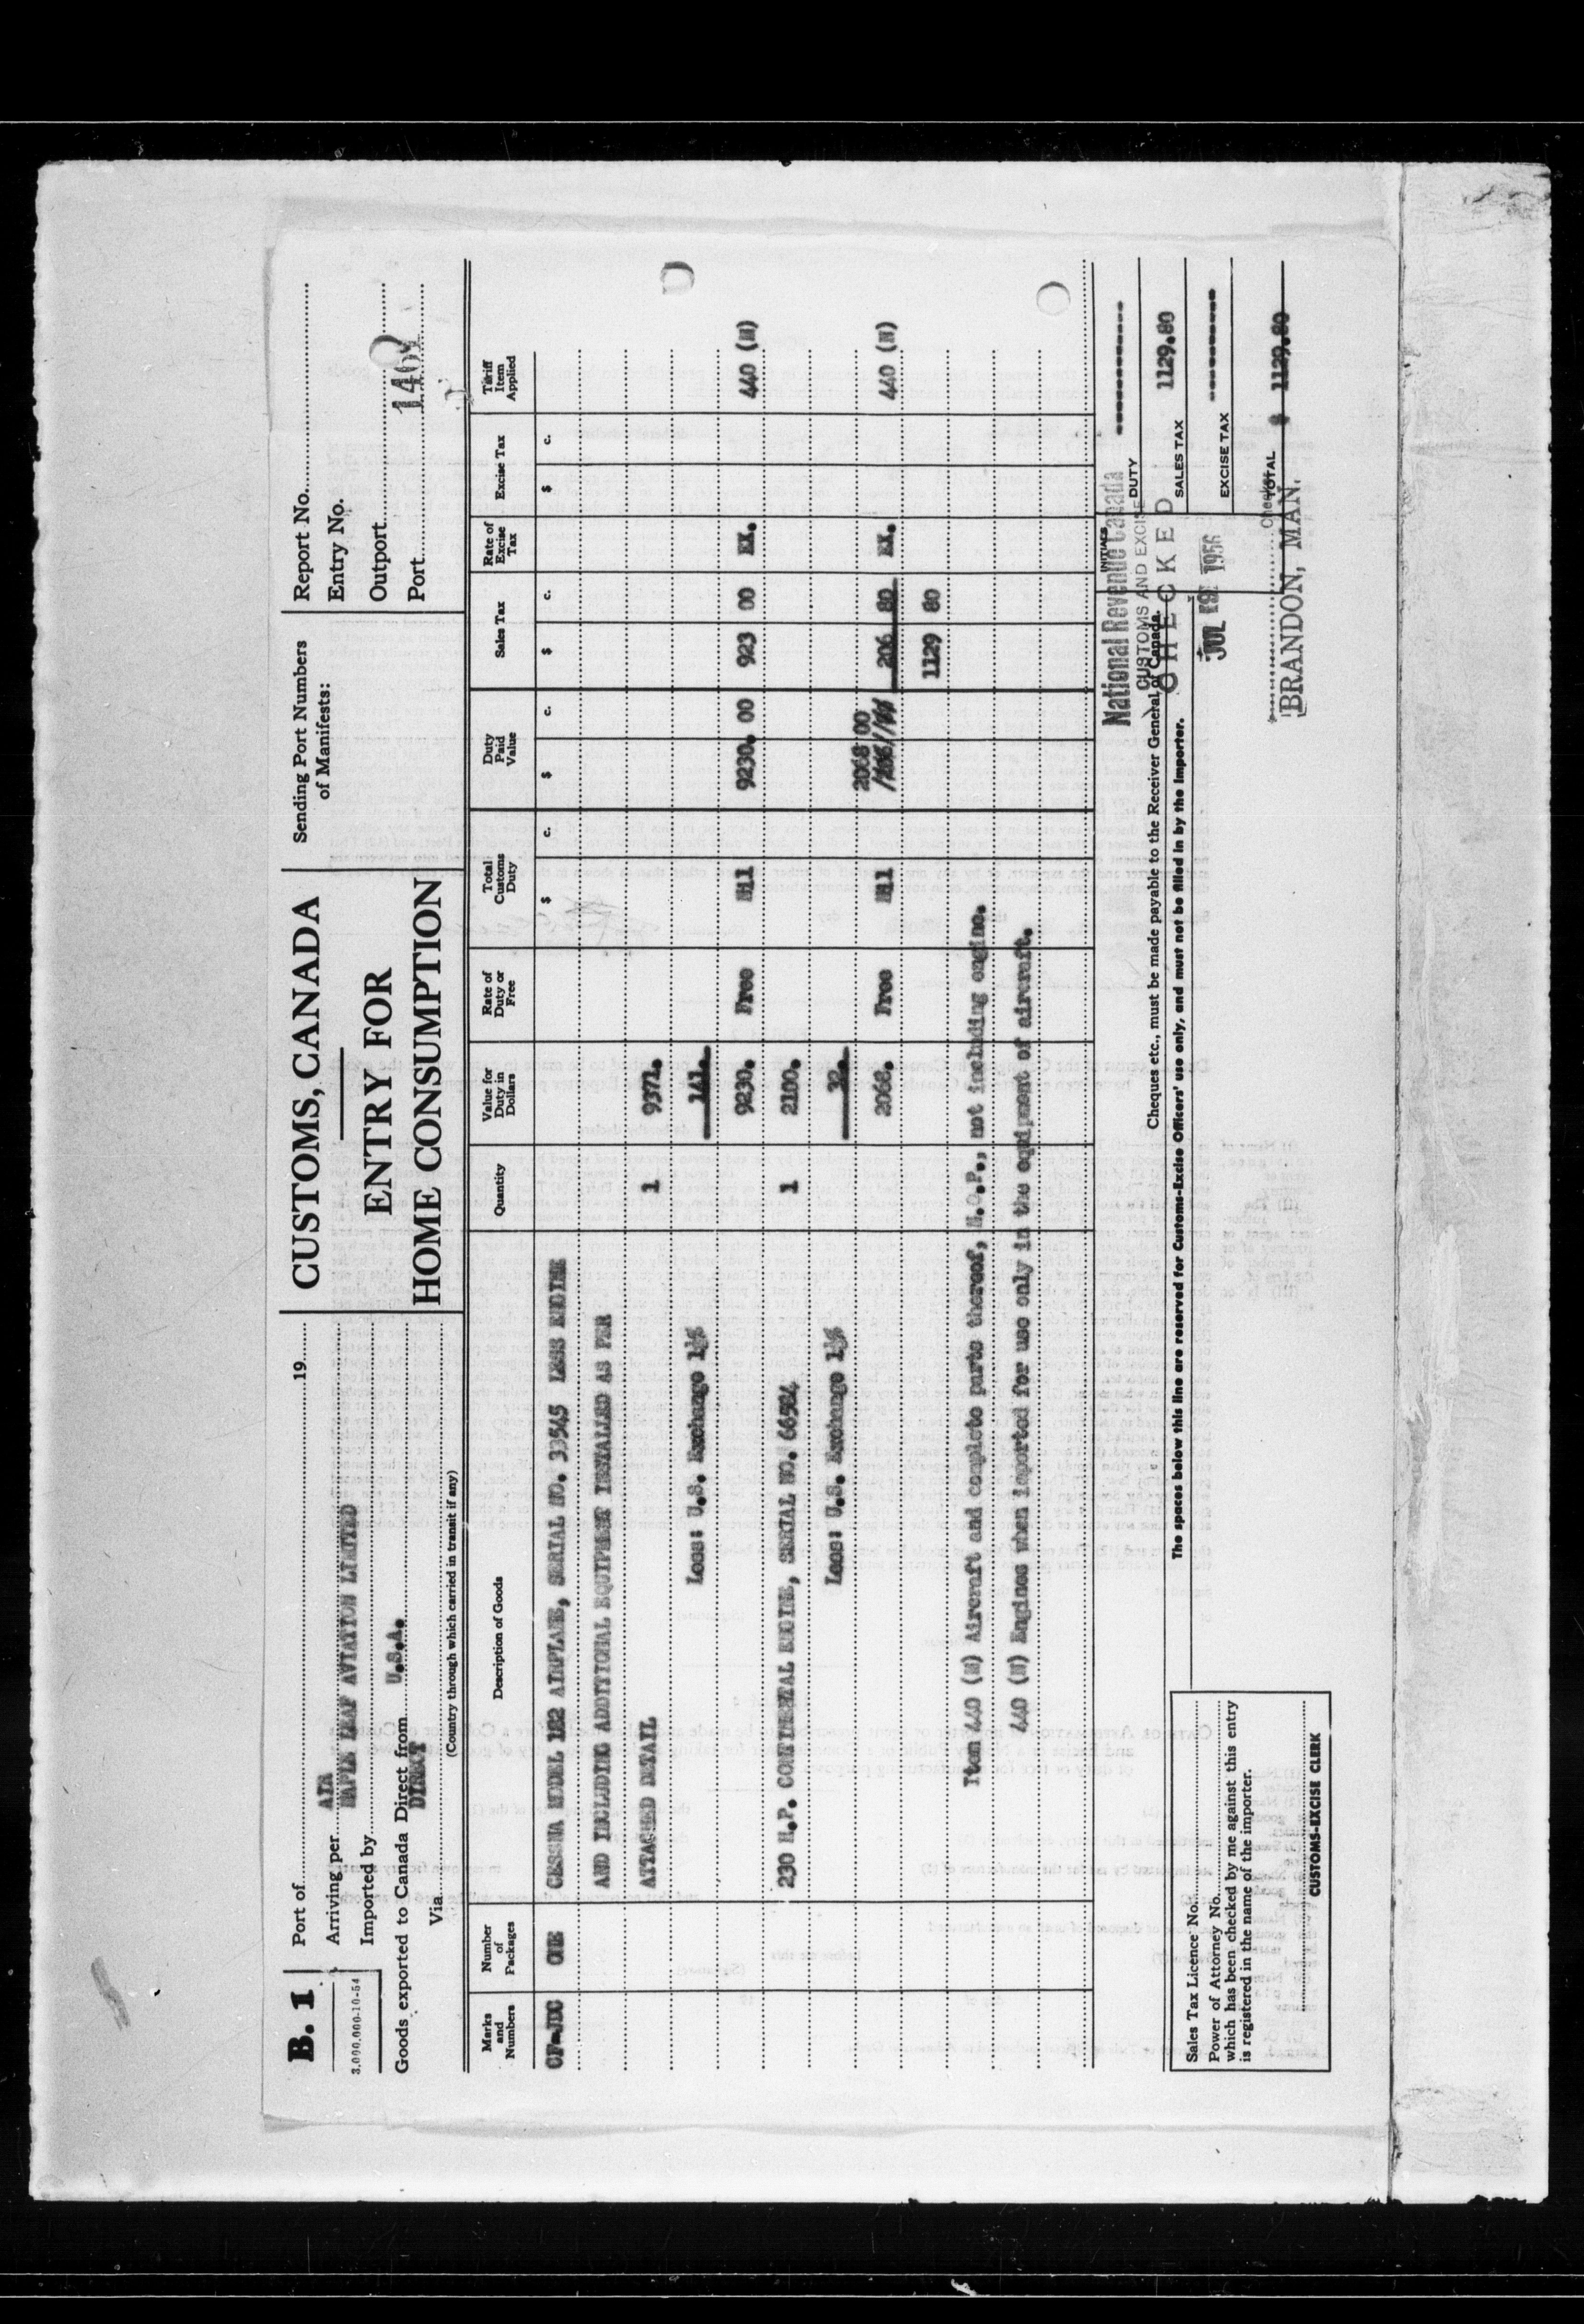 B. 1
3,000,000-10-54
Port of 19
Arriving per AIR
Imported by MAPLE LEAF AVIATION LIMITED
Goods exported to Canada Direct from U.S.A.
Via DIRECT
(Country through which carried in transit if any)
CUSTOMS, CANADA
ENTRY FOR
HOME CONSUMPTION
Sending Port Numbers
of Manifests:
Report No.
Entry No.
Outport
Port
Marks and Numbers Number of Packages Description of Goods Quantity Value for Duty in Dollars Rate of Duty or Free Total Customs Duty Duty Paid Value Sales Tax Rate of Excise Tax Excise Tax Tariff Item Applied
$ c. $ c. $ c. $ c.
CF-JDC ONE CESSNA MODEL 182 AIRPLANE, SERIAL NO. 33545 LESS ENGINE
AND INCLUDING ADDITIONAL EQUIPMENT INSTALLED AS PER
ATTACHED DETAIL 1 9371.
Less: U.S. Exchange 1½% 141.
9230. Free Nil 9230. 00 923 00 EX. 440 (M)
230 H.P. CONTINENTAL ENGINE, SERIAL NO. 66524 1 2100.
Less: U.S. Exchange 1½% 32.
2068. Free Nil 2068 00 206 80 EX. 440 (N)
1129 80
Item 440 (M) Aircraft and complete parts thereof, N.O.P., not including engine.
440 (N) Engines when imported for use only in the equipment of aircraft.
INITIALS
DUTY
SALES TAX 1129.80
EXCISE TAX
TOTAL $ 1129.80
Cheques etc., must be made payable to the Receiver General of Canada.
The spaces below this line are reserved for Customs-Excise Officers' use only, and must not be filled in by the Importer.
National Revenue Canada
CUSTOMS AND EXCISE
CHECKED
JUL 19 1956
BRANDON, MAN.
Sales Tax Licence No.
Power of Attorney No.
which has been checked by me against this entry
is registered in the name of the importer.
CUSTOMS-EXCISE CLERK